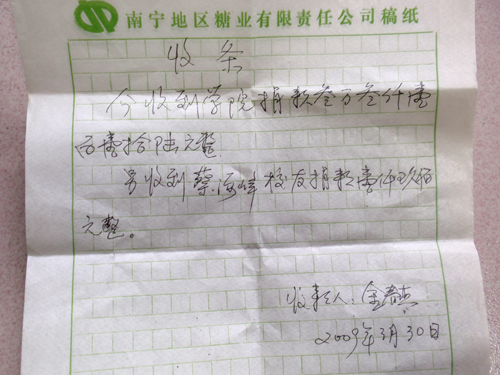 南宁地区糖业有限责任公司稿纸
收条
今收到学院捐款叁万叁仟壹
百壹拾陆元整
另收到蔡海峰校友捐款壹仟玖佰
元整。
收款人:金
2009年3月30日